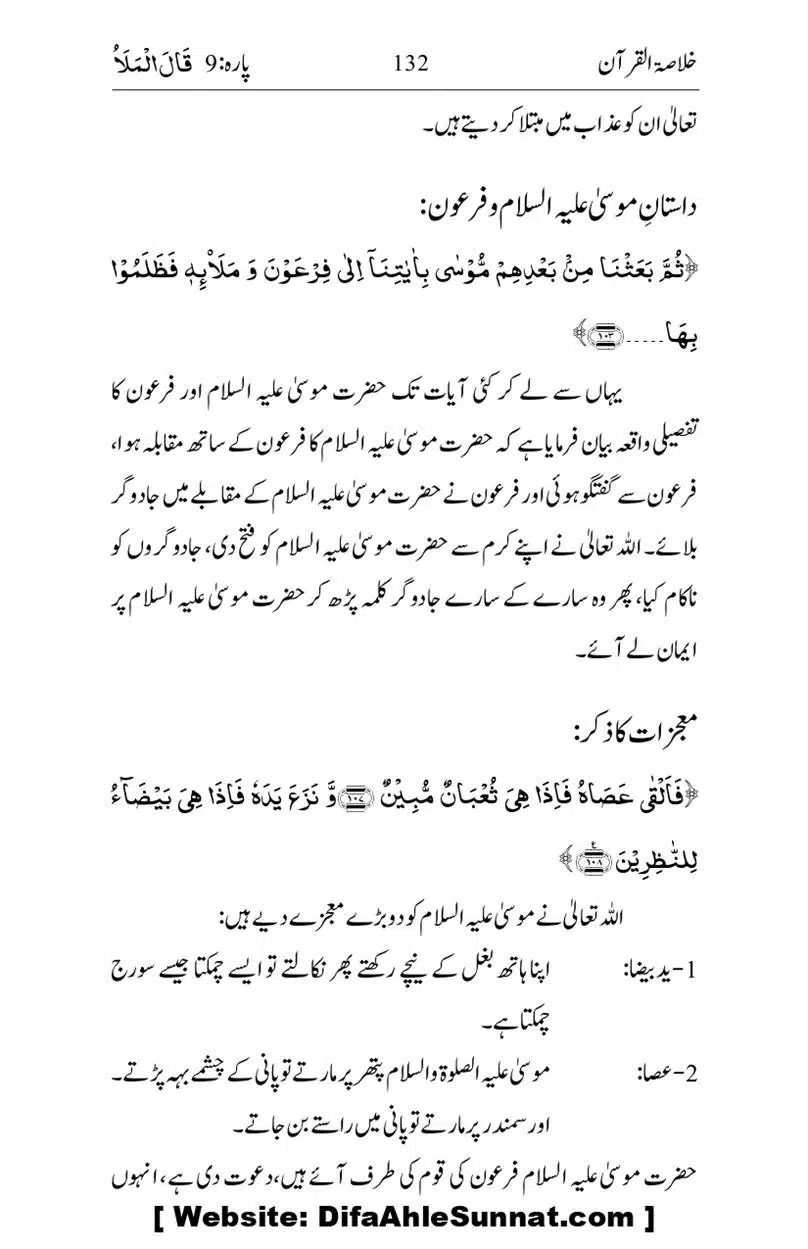 خلاصۃ القرآن 132 پارہ:9 قَالَ الْمَلَاُ
تعالیٰ ان کو عذاب میں مبتلا کر دیتے ہیں۔
داستانِ موسیٰ علیہ السلام و فرعون:
﴿ثُمَّ بَعَثْنَا مِنْۢ بَعْدِهِمْ مُّوْسٰى بِاٰيٰتِنَاۤ اِلٰى فِرْعَوْنَ وَ مَلَاۡئِهٖ فَظَلَمُوْا
بِهَا.....﴿۱۰۳﴾﴾
یہاں سے لے کر کئی آیات تک حضرت موسیٰ علیہ السلام اور فرعون کا
تفصیلی واقعہ بیان فرمایا ہے کہ حضرت موسیٰ علیہ السلام کا فرعون کے ساتھ مقابلہ ہوا،
فرعون سے گفتگو ہوئی اور فرعون نے حضرت موسیٰ علیہ السلام کے مقابلے میں جادوگر
بلائے۔ اللہ تعالیٰ نے اپنے کرم سے حضرت موسیٰ علیہ السلام کو فتح دی، جادوگروں کو
ناکام کیا، پھر وہ سارے کے سارے جادوگر کلمہ پڑھ کر حضرت موسیٰ علیہ السلام پر
ایمان لے آئے۔
معجزات کا ذکر:
﴿فَاَلْقٰى عَصَاهُ فَاِذَا هِىَ ثُعْبَانٌ مُّبِيْنٌ ﴿۱۰۷﴾ وَّ نَزَعَ يَدَهٗ فَاِذَا هِىَ بَيْضَآءُ
لِلنّٰظِرِيْنَ ﴿۱۰۸﴾ ع﴾
اللہ تعالیٰ نے موسیٰ علیہ السلام کو دو بڑے معجزے دیے ہیں:
1- ید بیضا: اپنا ہاتھ بغل کے نیچے رکھتے پھر نکالتے تو ایسے چمکتا جیسے سورج
چمکتا ہے۔
2- عصا: موسیٰ علیہ الصلوۃ والسلام پتھر پر مارتے تو پانی کے چشمے بہہ پڑتے۔
اور سمندر پر مارتے تو پانی میں راستے بن جاتے۔
حضرت موسیٰ علیہ السلام فرعون کی قوم کی طرف آئے ہیں، دعوت دی ہے، انہوں
[ Website: DifaAhleSunnat.com ]